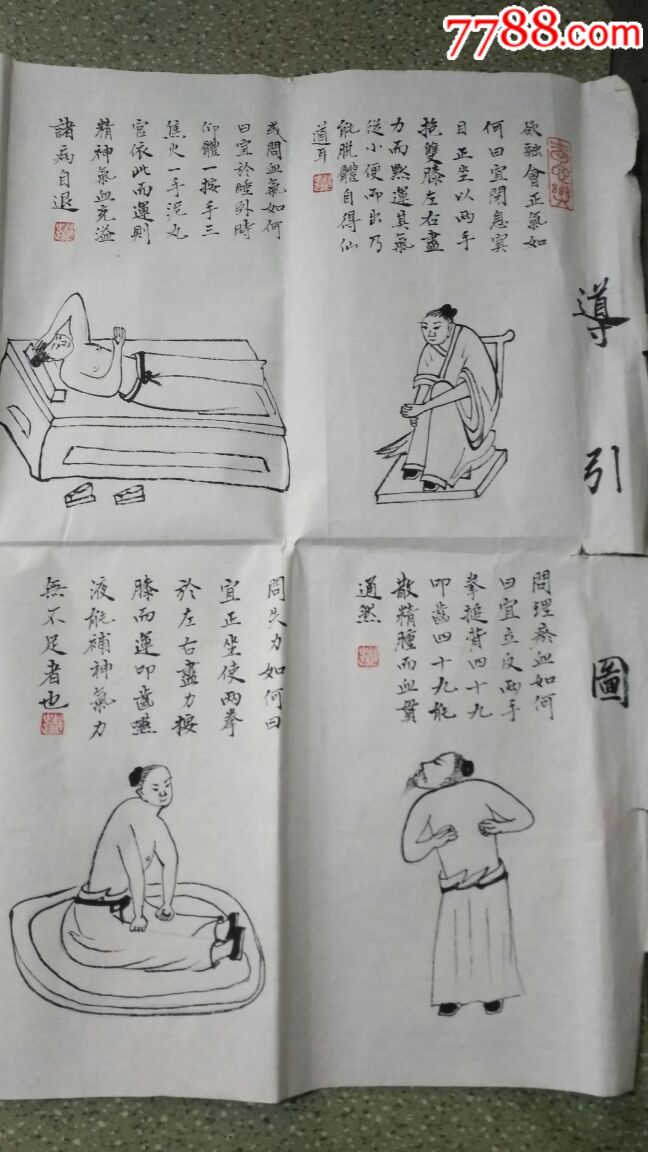 7788.com
導引圖
欲融會正氣如
何曰宜閉息冥
目正坐以兩手
抱雙膝左右盡
力而黙運其氣
從小便而出乃
能脱體自得仙
道耳
或問血氣如何
曰宜於睡卧時
仰體一按手三
焦火一手泥丸
宮依此而運則
精神氣血充溢
諸病自退
問理瘀血如何
曰宜立反兩手
拳搥背四十九
叩齒四十九能
散精腫而血貫
通然
問失力如何曰
宜正坐使兩拳
於左右盡力按
膝而運叩齒嚥
液能補神氣力
無不足者也